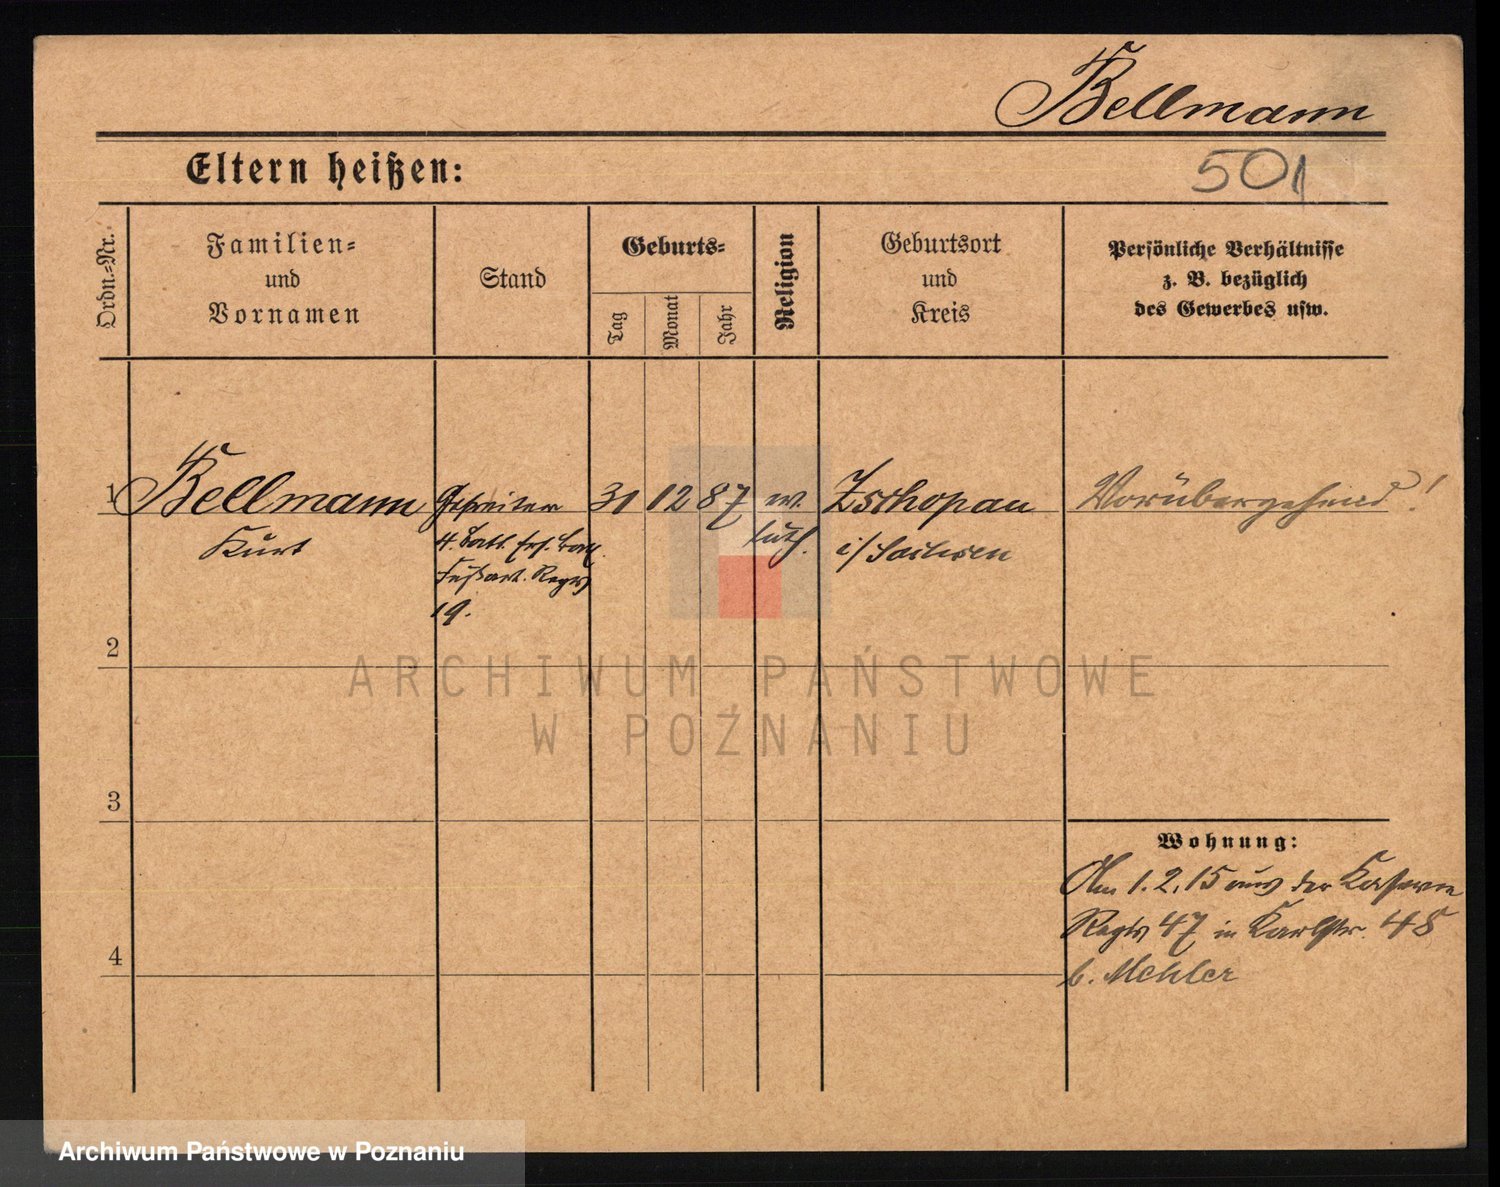 Bellmann
Eltern heißen:
501
Ordn.-Nr.
Familien-
und
Vornamen
Stand
Geburts-
Tag
Monat
Jahr
Religion
Geburtsort
und
Kreis
Persönliche Verhältnisse
z. B. bezüglich
des Gewerbes usw.
1 Bellmann Gefreiter 31 12 87 ev. Zschopau Vorübergehend!
Kurt 4. Batt. Ers. Batl. luth. i/Sachsen
Fußart. Regts
19.
2
3
4
Wohnung:
Am 1.2.15 aus der Kaserne
Regts 47 in Karlstr. 48
b. Mehler
ARCHIWUM PAŃSTWOWE
W POZNANIU
Archiwum Państwowe w Poznaniu